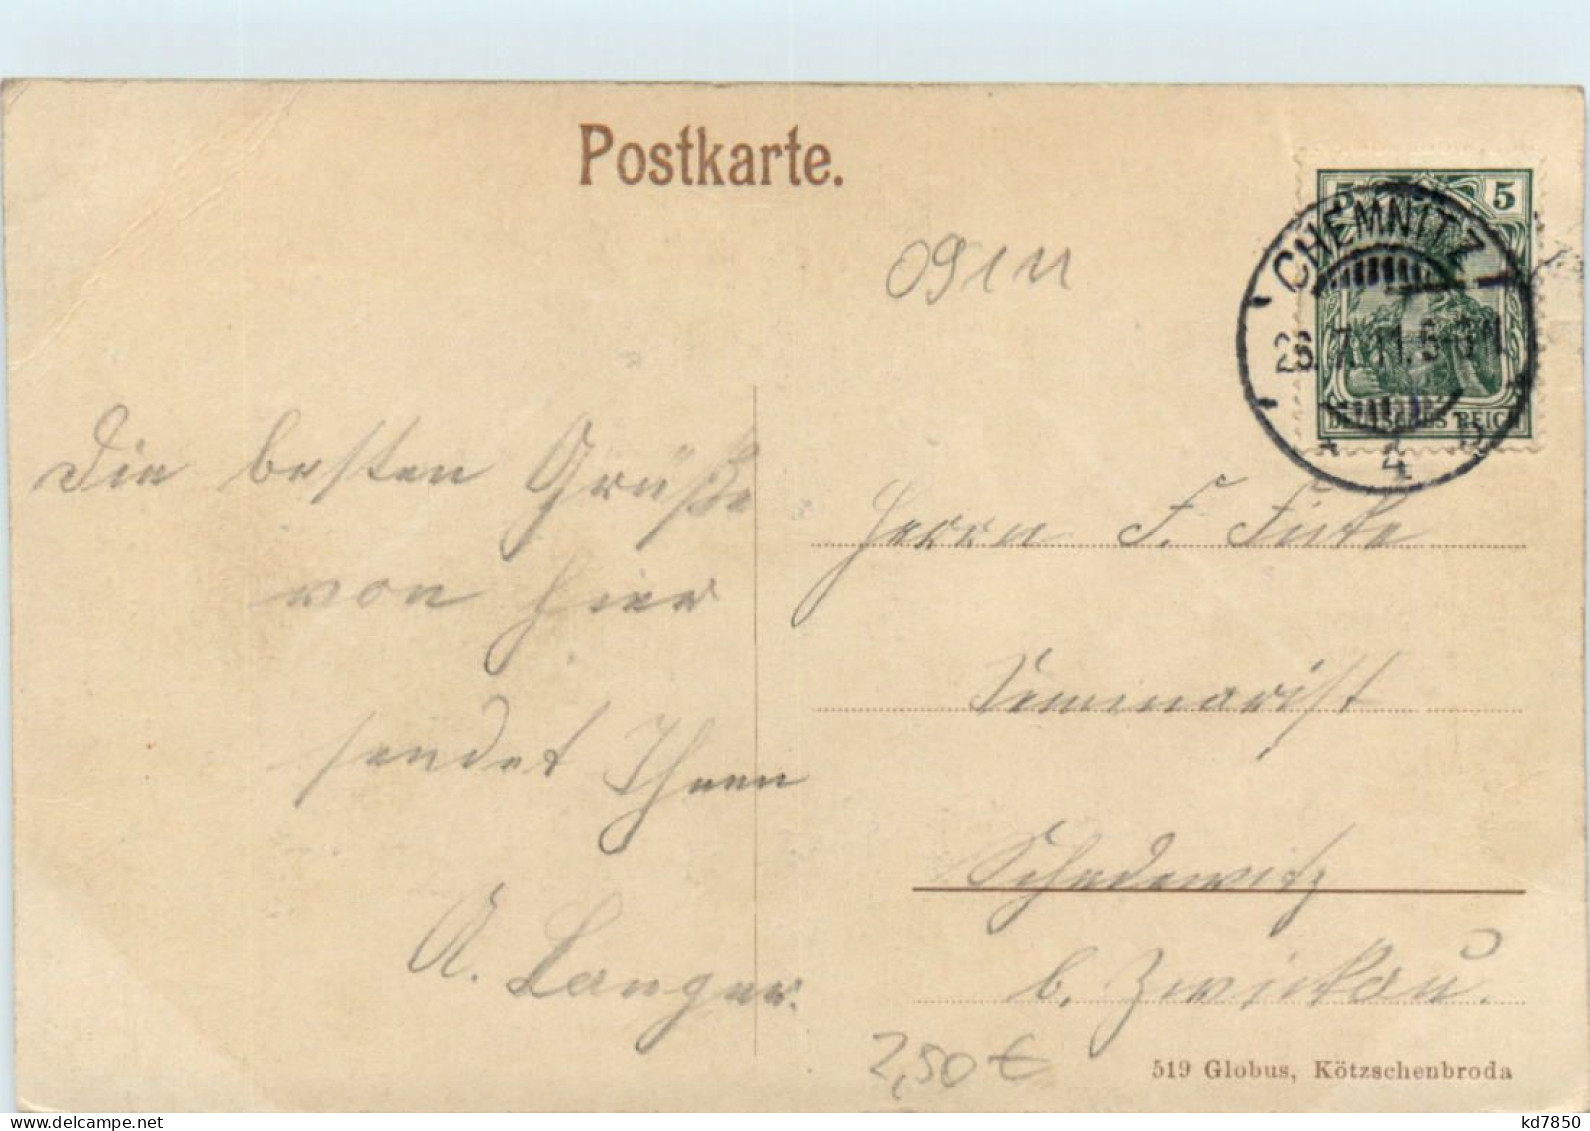 Postkarte.
5 5
CHEMNITZ
7. 11. 5-
4
DEUTSCHES REICH
Die besten Grüße
von hier
sendet Ihnen
A. Langer.
Herrn F.
Seminarist
Schedewitz
b. Zwickau.
2,50 €
519 Globus, Kötzschenbroda
www.delcampe.net
kd7850